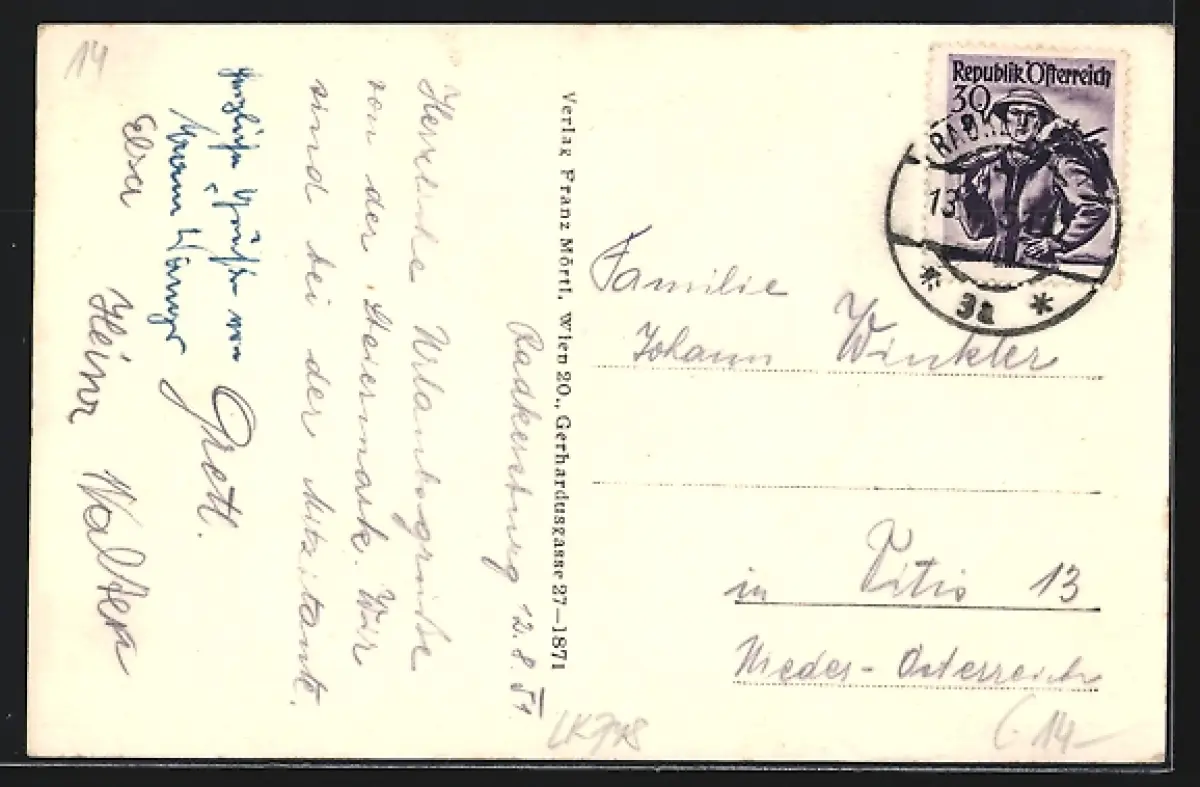 14
Radkersburg 12.8.51.
Herzliche Urlaubsgrüße
von der Steiermark. Wir
sind bei der Mitzitante.
Herzliche Grüße von
Gretl.
Elsa
Heinz Walter
Verlag Franz Mörtl, Wien 20., Gerhardusgasse 27—1871
Republik Österreich
30
RADKE
13
* 3a *
Familie
Johann Winkler
in Litis 13
Nieder-Österreich
14-